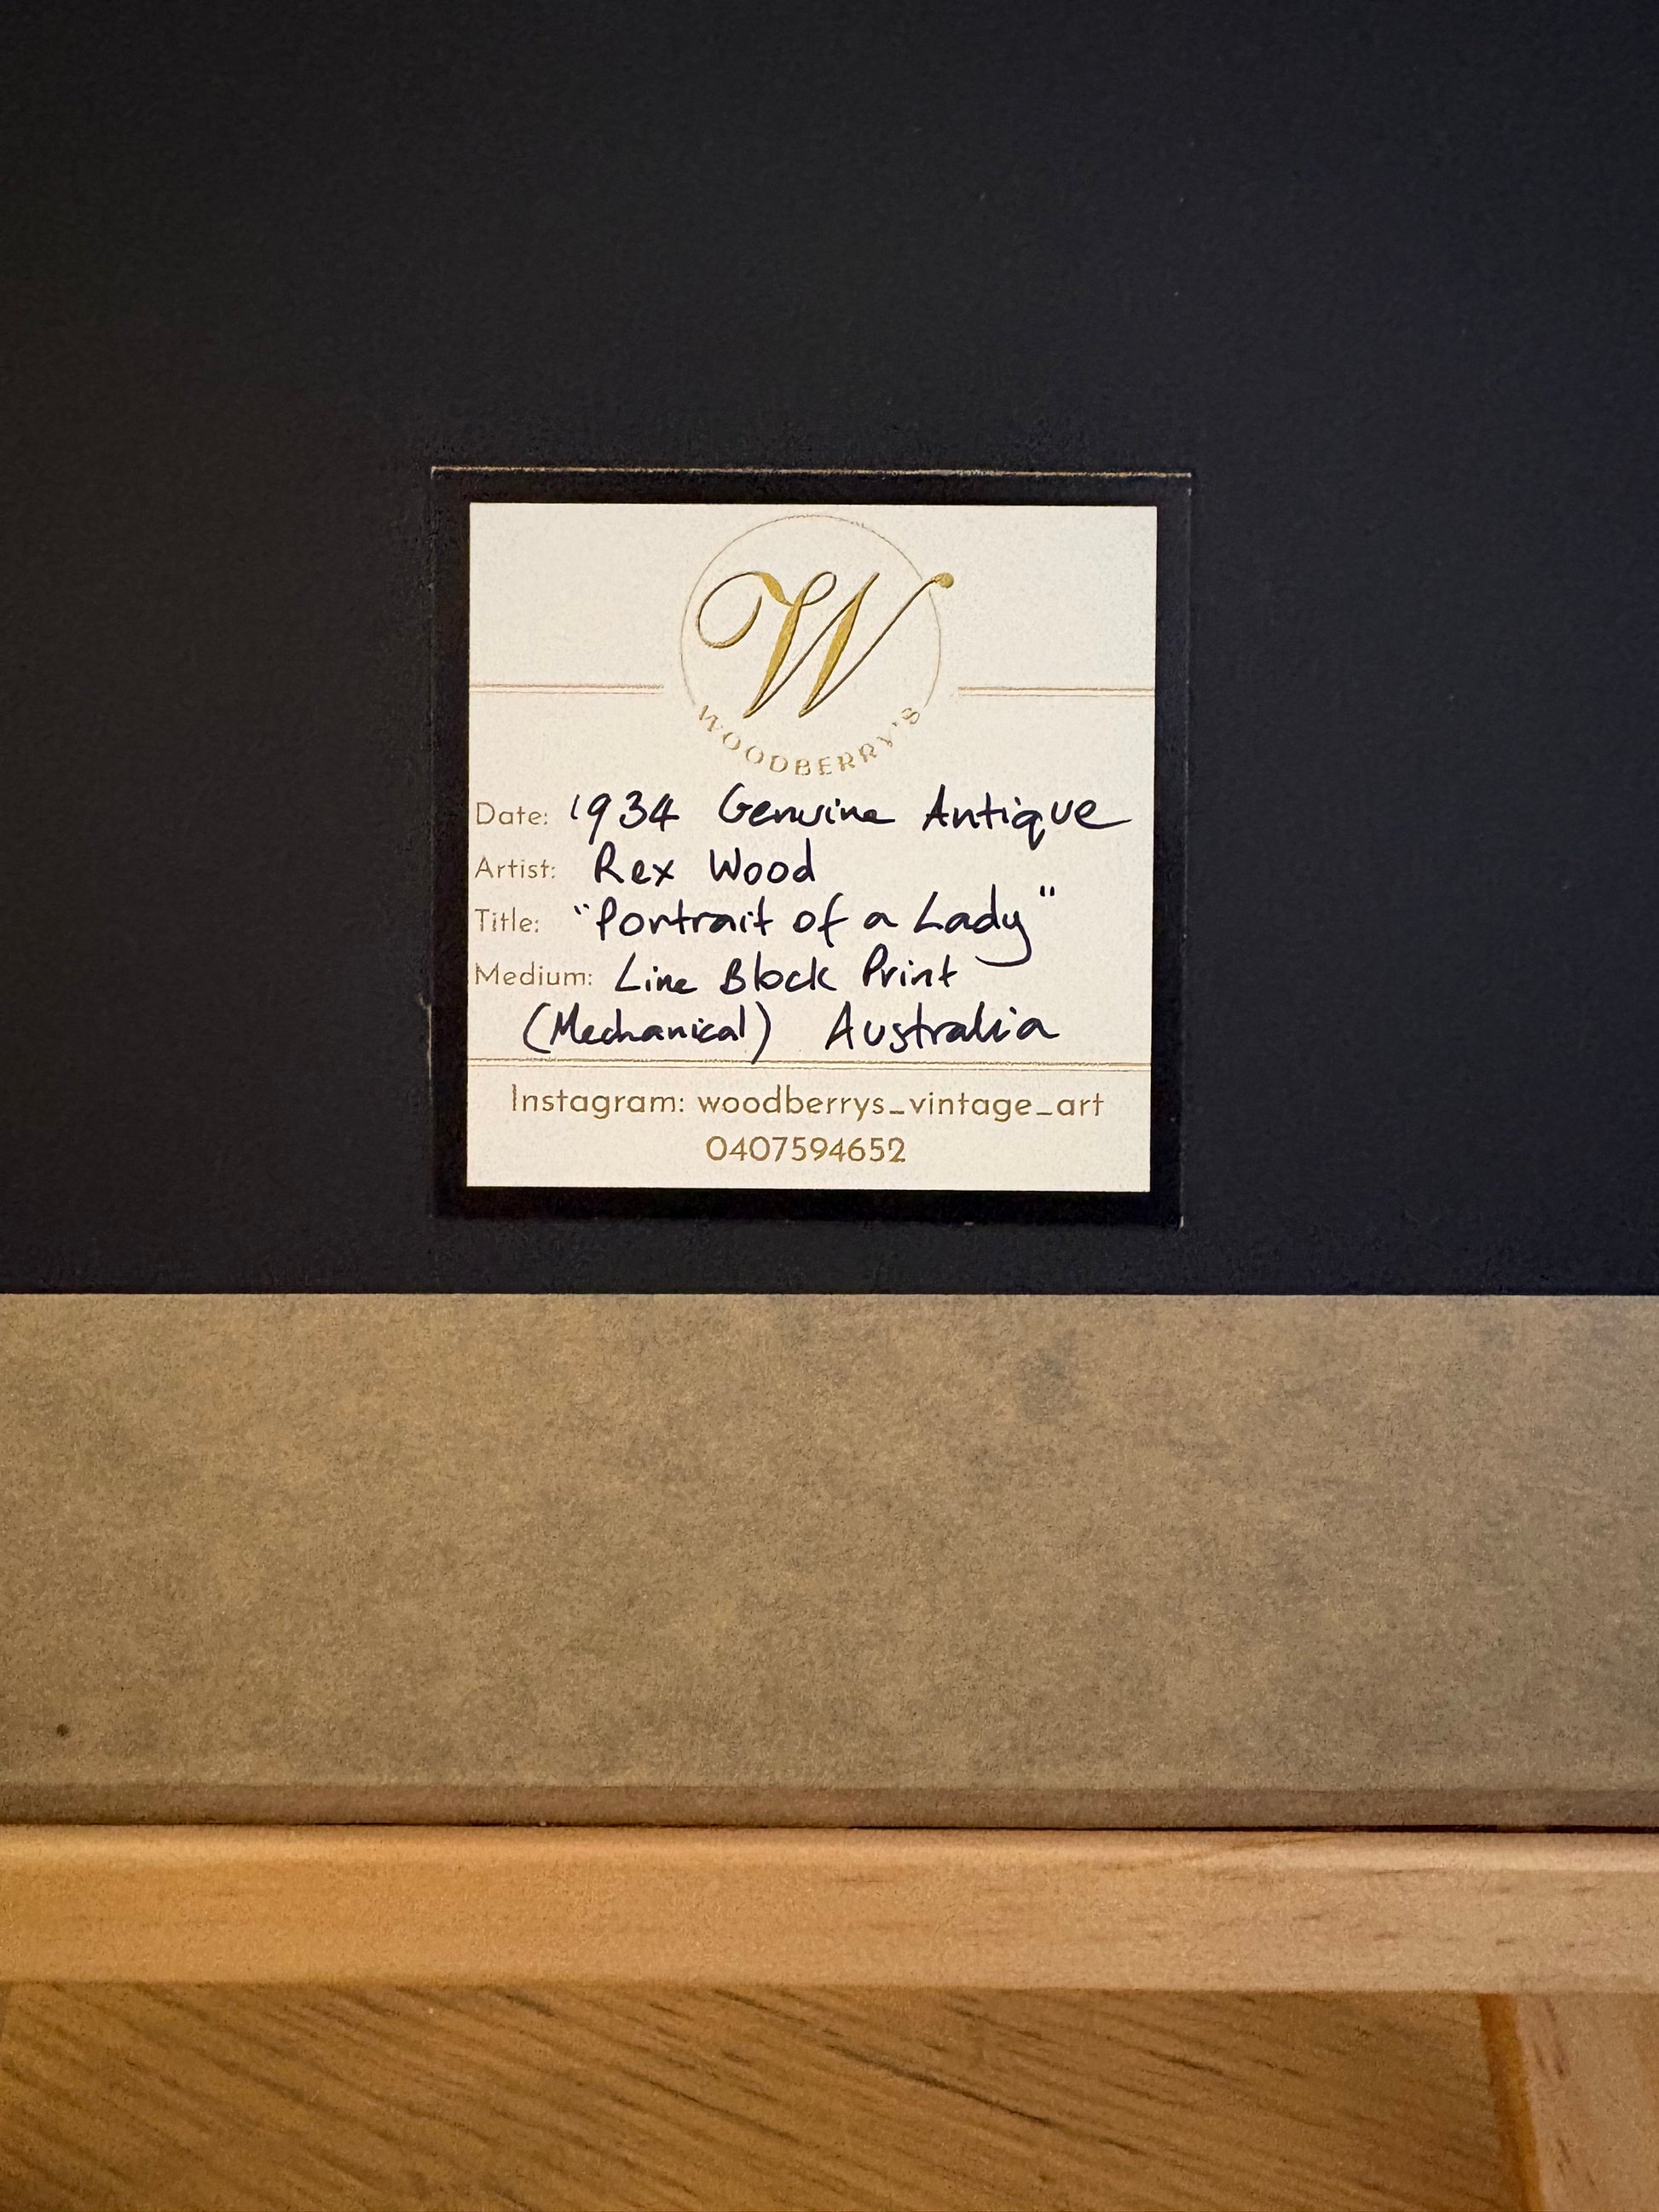 W
WOODBERRY'S
Date: 1934 Genuine Antique
Artist: Rex Wood
Title: "Portrait of a Lady"
Medium: Line Block Print
(Mechanical) Australia
Instagram: woodberrys_vintage_art
0407594652